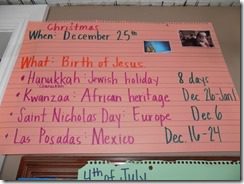 Christmas
When: December 25th
What: Birth of Jesus.
• Hanukkah: Jewish holiday 8 days
• Kwanzaa: African heritage Dec. 26-Jan1
• Saint Nicholas Day: Europe Dec. 6
• Las Posadas: Mexico Dec. 16-24
4th of July